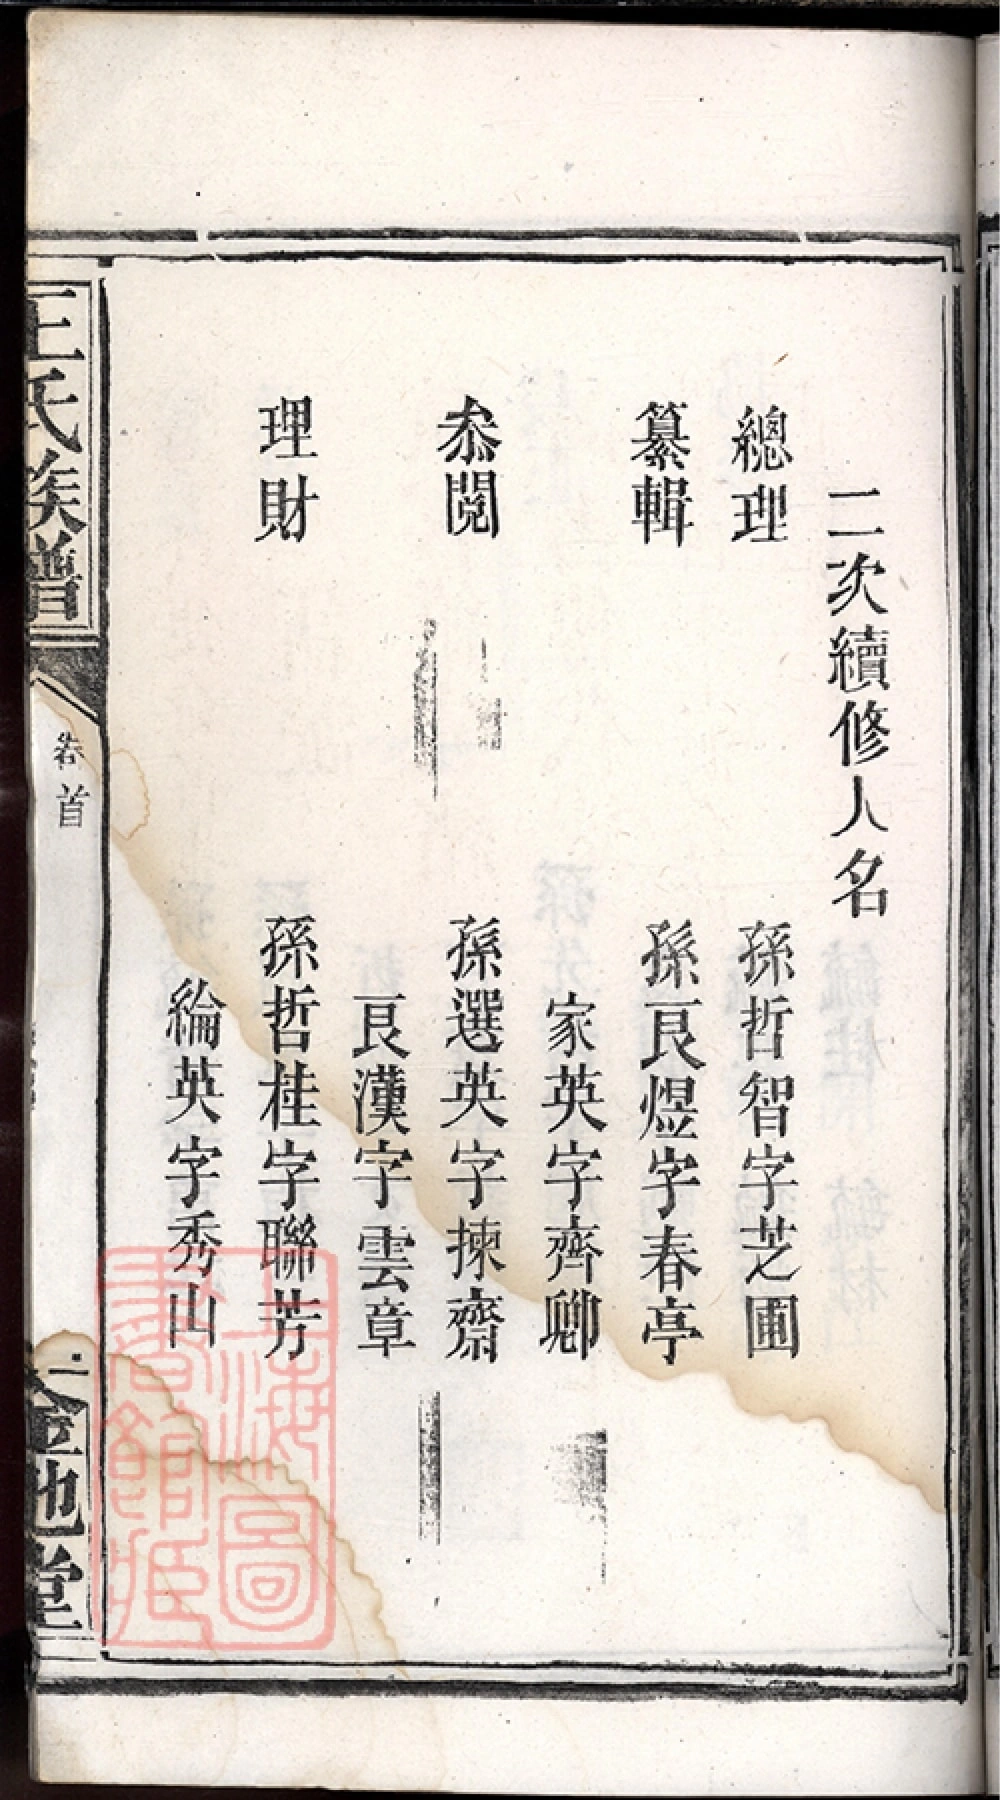 二次續修人名
總理 孫哲智字芝圃
纂輯 孫艮煜字春亭
家英字齊卿
叅閱 孫選英字揀齋
艮漢字雲章
理財 孫哲桂字聯芳
綸英字秀山
王氏族譜
卷首
一
金地堂
上海圖書館藏